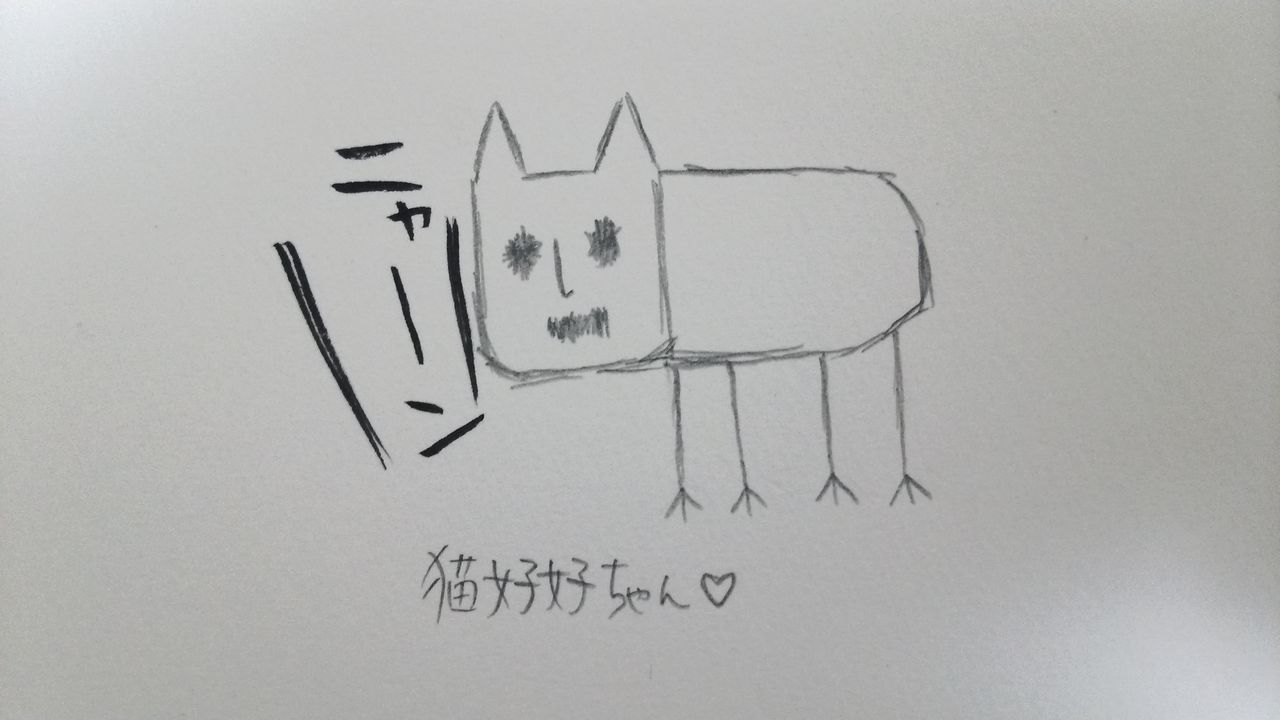 ニャーン
猫好好ちゃん♡